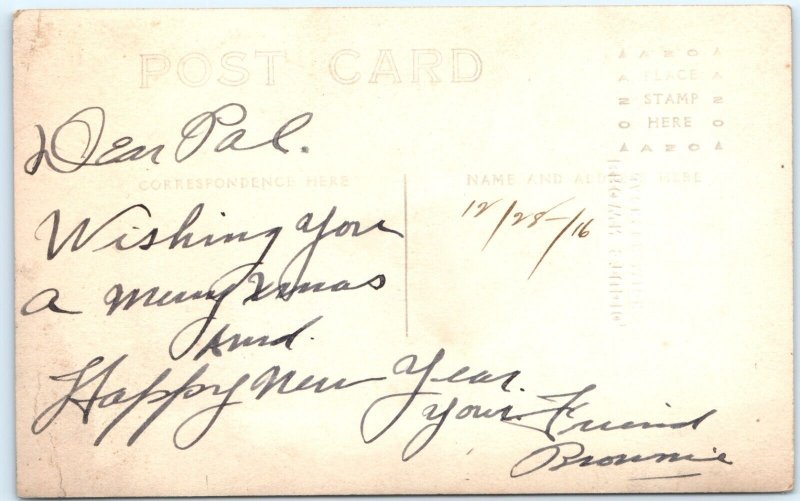 POST CARD
AZO
PLACE
STAMP
HERE
AZO
Dear Pal.
CORRESPONDENCE HERE
NAME AND ADDRESS HERE
12/28-/16
Wishing You
a Merry Xmas
And.
Happy New Year.
Your Friend
Brownie